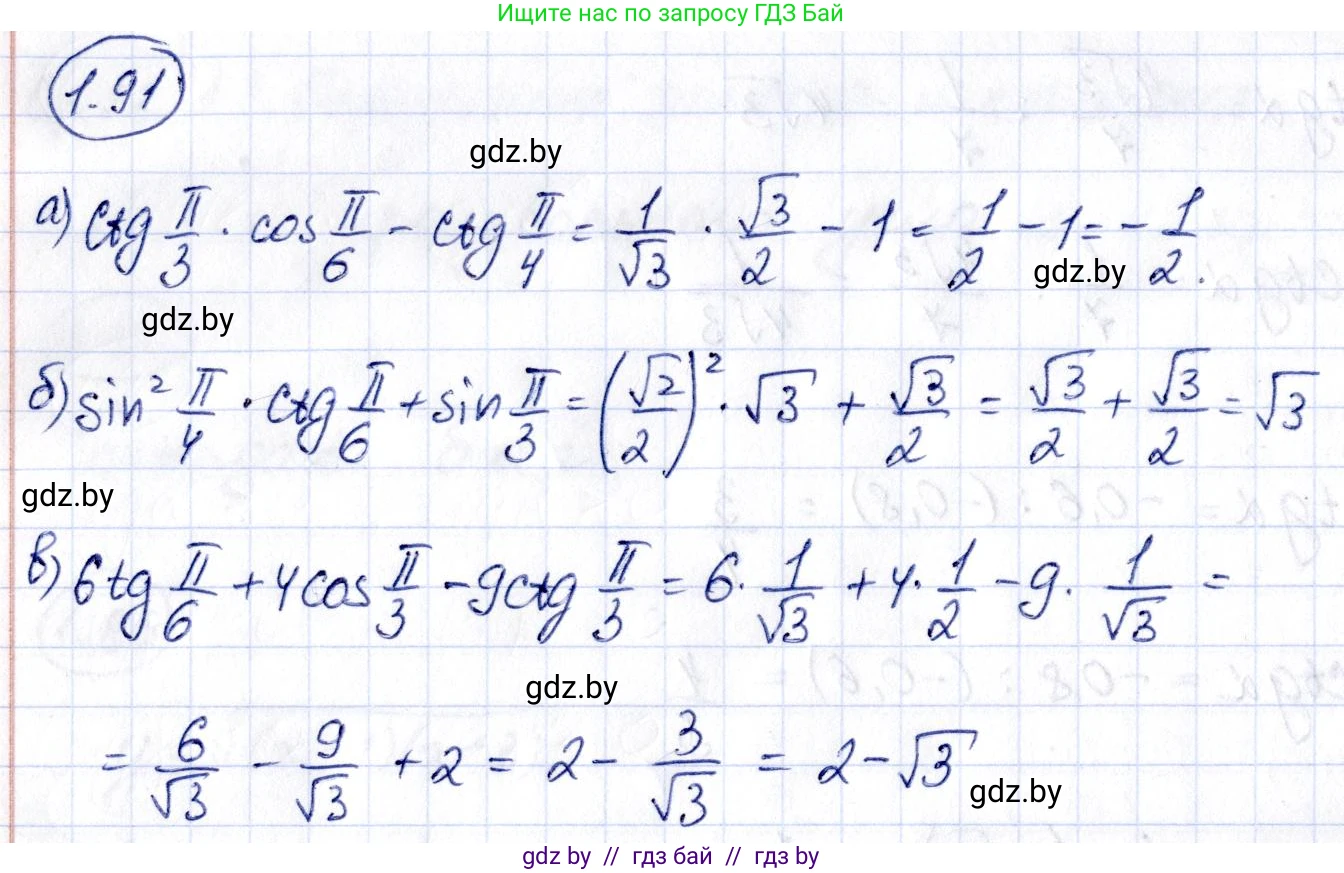 Ищите нас по запросу ГДЗ Бай
1.91
gdz.by
а) ctg π/3 · cos π/6 - ctg π/4 = 1/√3 · √3/2 - 1 = 1/2 - 1 = -1/2.
gdz.by
gdz.by
б) sin² π/4 · ctg π/6 + sin π/3 = (√2/2)² · √3 + √3/2 = √3/2 + √3/2 = √3
gdz.by
в) 6tg π/6 + 4cos π/3 - 9ctg π/3 = 6 · 1/√3 + 4 · 1/2 - 9 · 1/√3 =
gdz.by
= 6/√3 - 9/√3 + 2 = 2 - 3/√3 = 2 - √3
gdz.by
gdz by // гдз бай // гдз by